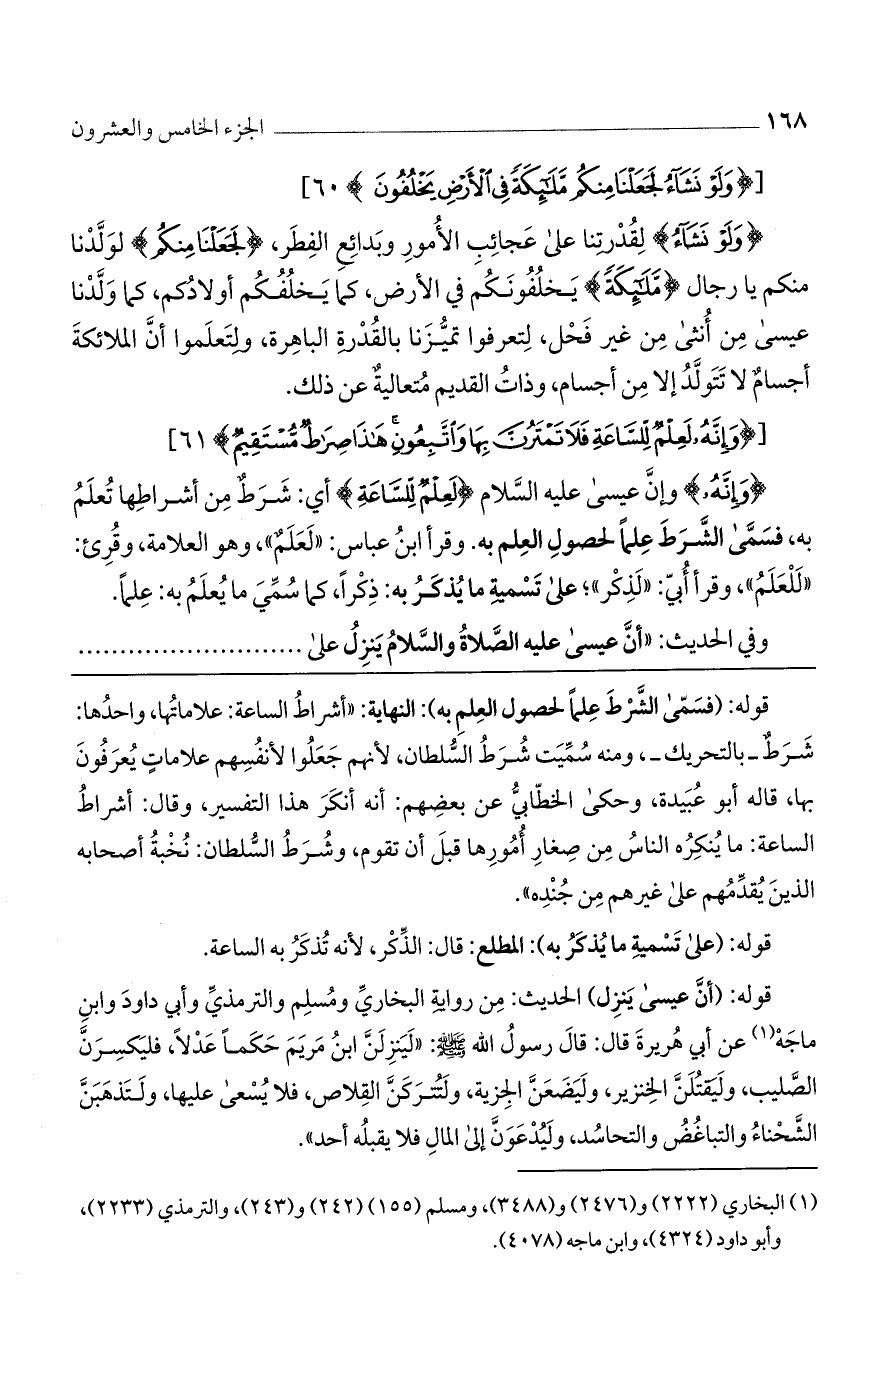 ١٦٨ الجزء الخامس والعشرون
[﴿وَلَوْ نَشَآءُ لَجَعَلْنَا مِنكُم مَّلَٰٓئِكَةً فِى ٱلْأَرْضِ يَخْلُفُونَ ﴾ ٦٠]
﴿وَلَوْ نَشَآءُ﴾ لِقُدْرتِنا علىٰ عَجائبِ الأُمورِ وبَدائعِ الفِطَر، ﴿لَجَعَلْنَا مِنكُم﴾ لولَّدْنا
منكم يا رجال ﴿مَّلَٰٓئِكَةً﴾ يَخلُفُونَكُم في الأرض، كما يَخلُفُكُم أولادُكم، كما وَلَّدْنا
عيسىٰ مِن أُنثىٰ مِن غير فَحْل، لِتعرفوا تميُّزَنا بالقُدْرةِ الباهِرة، ولِتَعلَموا أنَّ الملائكةَ
أجسامٌ لا تَتَولَّدُ إلا مِن أجسام، وذاتُ القديم مُتعاليةٌ عن ذلك.
[﴿وَإِنَّهُۥ لَعِلْمٌ لِّلسَّاعَةِ فَلَا تَمْتَرُنَّ بِهَا وَٱتَّبِعُونِ ۚ هَٰذَا صِرَٰطٌ مُّسْتَقِيمٌ﴾ ٦١]
﴿وَإِنَّهُۥ﴾ وإنَّ عيسىٰ عليه السَّلام ﴿لَعِلْمٌ لِّلسَّاعَةِ﴾ أي: شَرَطٌ مِن أشراطِها تُعلَمُ
به، فسَمَّىٰ الشَّرَطَ عِلماً لحصولِ العِلم به. وقرأ ابنُ عباس: «لَعَلَمٌ»، وهو العلامة، وقُرِئ:
«لَلْعَلَمُ»، وقرأ أُبيّ: «لَذِكْر»؛ علىٰ تَسْميةِ ما يُذكَرُ به: ذِكْراً، كما سُمِّيَ ما يُعلَمُ به: عِلماً.
وفي الحديث: «أنَّ عيسىٰ عليه الصَّلاةُ والسَّلامُ يَنزِلُ علىٰ ...........................
قوله: (فسَمّىٰ الشَّرَطَ عِلماً لحصول العِلمِ به): النهاية: «أشراطُ الساعة: علاماتُها، واحدُها:
شَرَطٌ ـ بالتحريك ـ، ومنه سُمِّيَت شُرَطُ السُّلطان، لأنهم جَعَلُوا لأنفُسِهم علاماتٍ يُعرَفُونَ
بها، قاله أبو عُبَيدة، وحكىٰ الخطّابيُّ عن بعضِهم: أنه أنكَرَ هذا التفسير، وقال: أشراطُ
الساعة: ما يُنكِرُه الناسُ مِن صِغارِ أُمُورِها قبلَ أن تقوم، وشُرَطُ السُّلطان: نُخْبةُ أصحابه
الذينَ يُقدِّمُهم علىٰ غيرهم مِن جُنْدِه».
قوله: (علىٰ تَسْميةِ ما يُذكَرُ به): المطلع: قال: الذِّكْر، لأنه تُذكَرُ به الساعة.
قوله: (أنَّ عيسىٰ يَنزِل) الحديث: مِن روايةِ البخاريِّ ومُسلِم والترمذيِّ وأبي داودَ وابنِ
ماجَهْ(١) عن أبي هُريرةَ قال: قالَ رسولُ الله ﷺ: «لَيَنزِلَنَّ ابنُ مَريَمَ حَكَماً عَدْلاً، فليَكسِرَنَّ
الصَّليب، ولَيَقتُلَنَّ الخِنزير، ولَيَضَعَنَّ الجِزية، ولَتُترَكَنَّ القِلاص، فلا يُسْعىٰ عليها، ولَتَذهَبَنَّ
الشَّحْناءُ والتباغُضُ والتحاسُد، ولَيُدْعَوَنَّ إلىٰ المالِ فلا يقبلُه أحد».
(١) البخاري (٢٢٢٢) و(٢٤٧٦) و(٣٤٨٨)، ومسلم (١٥٥) (٢٤٢) و(٢٤٣)، والترمذي (٢٢٣٣)،
وأبو داود (٤٣٢٤)، وابن ماجه (٤٠٧٨).